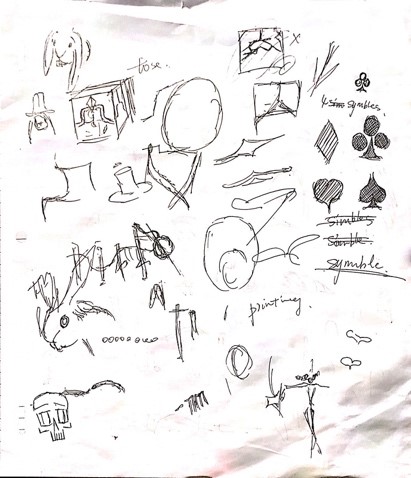 4 sim symbles.
simbles
simble
symble.
printing.